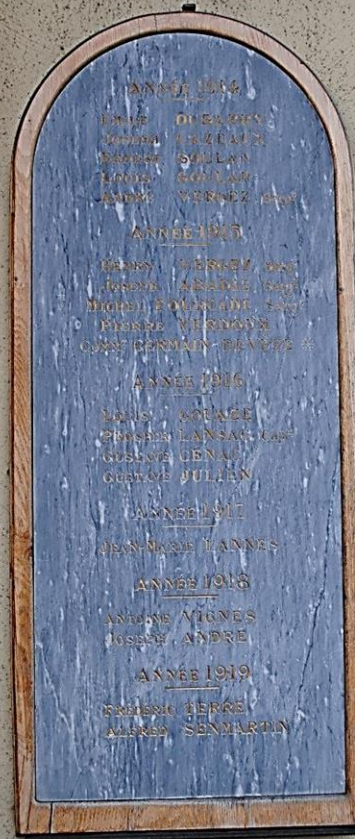 ANNÉE 1914
JOSEPH CAZEAUX
ERNEST SOULAN
LOUIS SOULAN
ANDRÉ VERGEZ
ANNÉE 1915
HENRI VERGEZ
JOSEPH ABADIE
MICHEL FOURCADE
PIERRE VERDOUX
GERMAIN
ANNÉE 1916
LOUIS
PROSPER LANSAC
GUSTAVE CÉNAC
GUSTAVE JULIEN
ANNÉE 1917
JEAN-MARIE LANNES
ANNÉE 1918
ANTOINE VIGNES
JOSEPH ANDRÉ
ANNÉE 1919
FRÉDÉRIC TERRÉ
ALFRED SENMARTIN